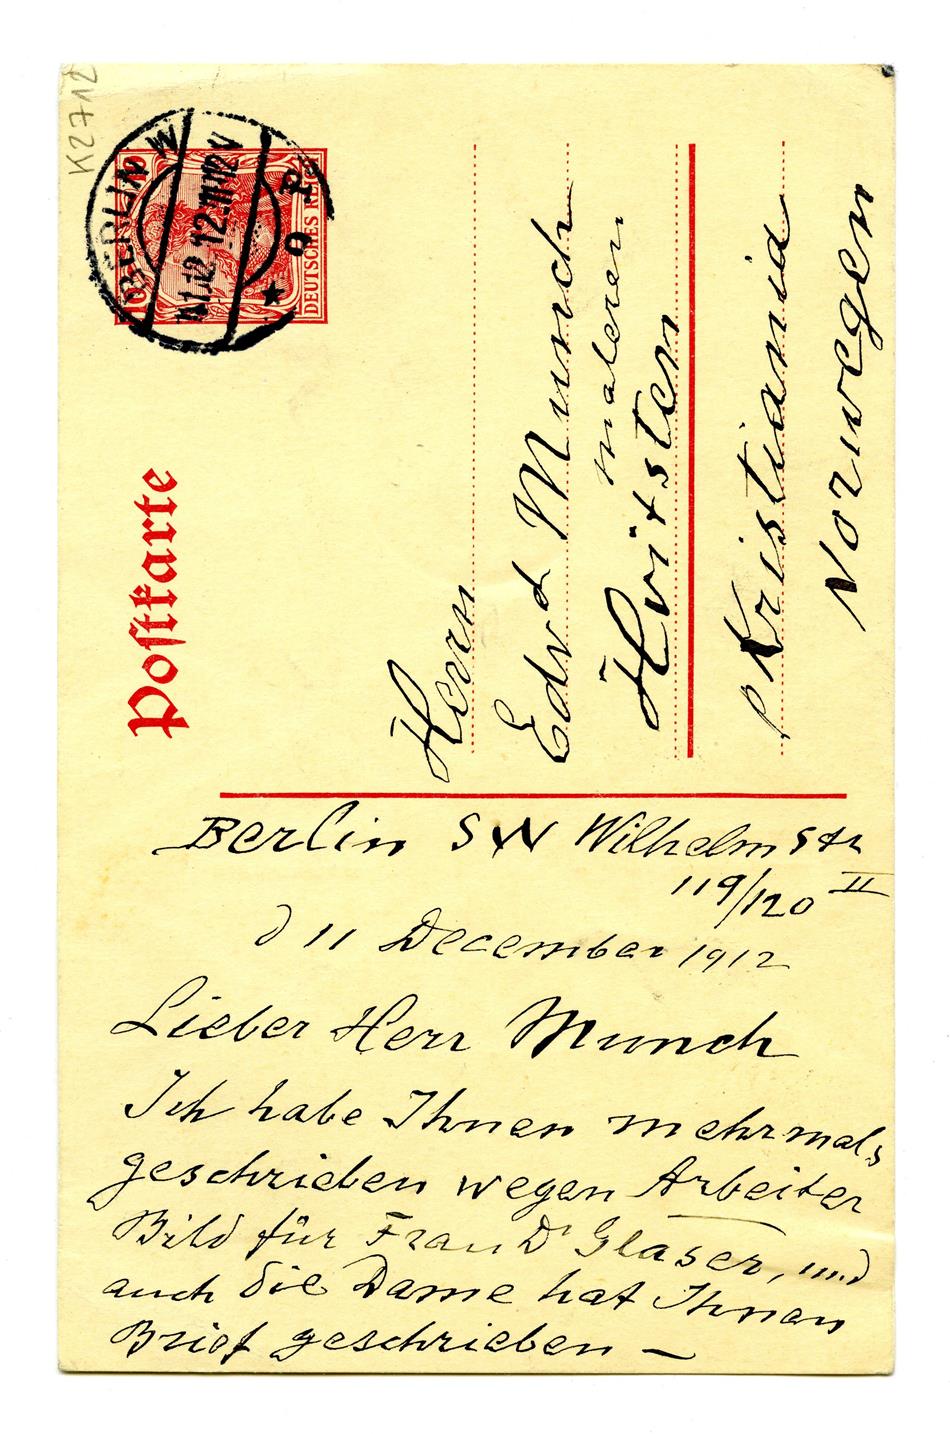 K2712
BERLIN W
11.12.12.11-12V
P
9
DEUTSCHES REICH
10
Postkarte
Herrn
Edvd Munch
maleren
Hvitsten
pr Kristiania
Norwegen
Berlin SW Wilhelmstr
119/120 II
d 11 December 1912
Lieber Herr Munch
Ich habe Ihnen mehrmals
geschrieben wegen Arbeiter
Bild für Frau Dr Glaser, und
auch die Dame hat Ihnen
Brief geschrieben —